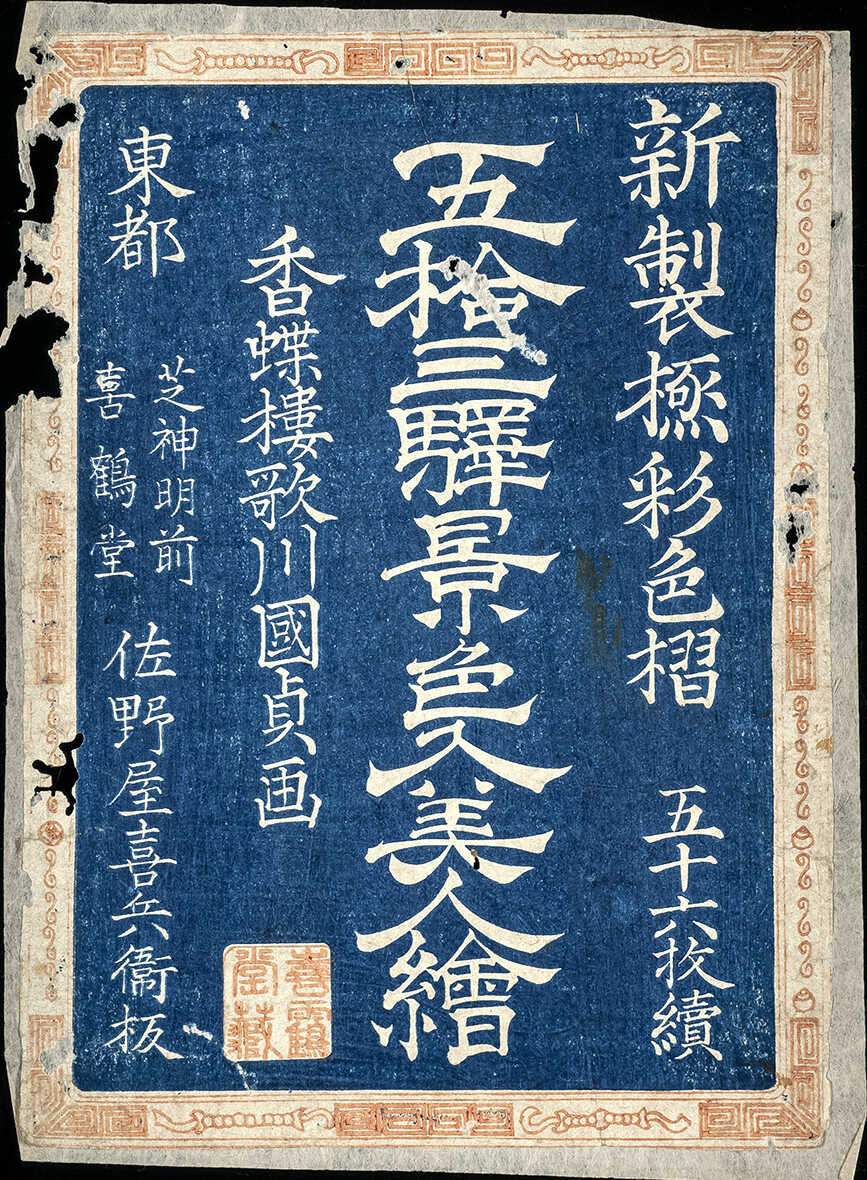 新製極彩色摺 五十六枚續
五拾三驛景色入美人繪
香蝶樓歌川國貞画
喜鶴堂藏
東都
芝神明前
喜鶴堂
佐野屋喜兵衛板